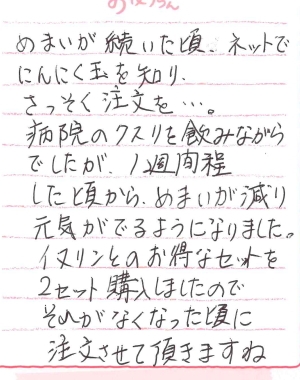 めまいが続いた頃、ネットで
にんにく玉を知り、
さっそく注文を…。
病院のクスリを飲みながら
でしたが、1週間程
した頃から、めまいが減り
元気がでるようになりました。
イヌリンとのお得なセットを
2セット購入しましたので
それがなくなった頃に
注文させて頂きますね